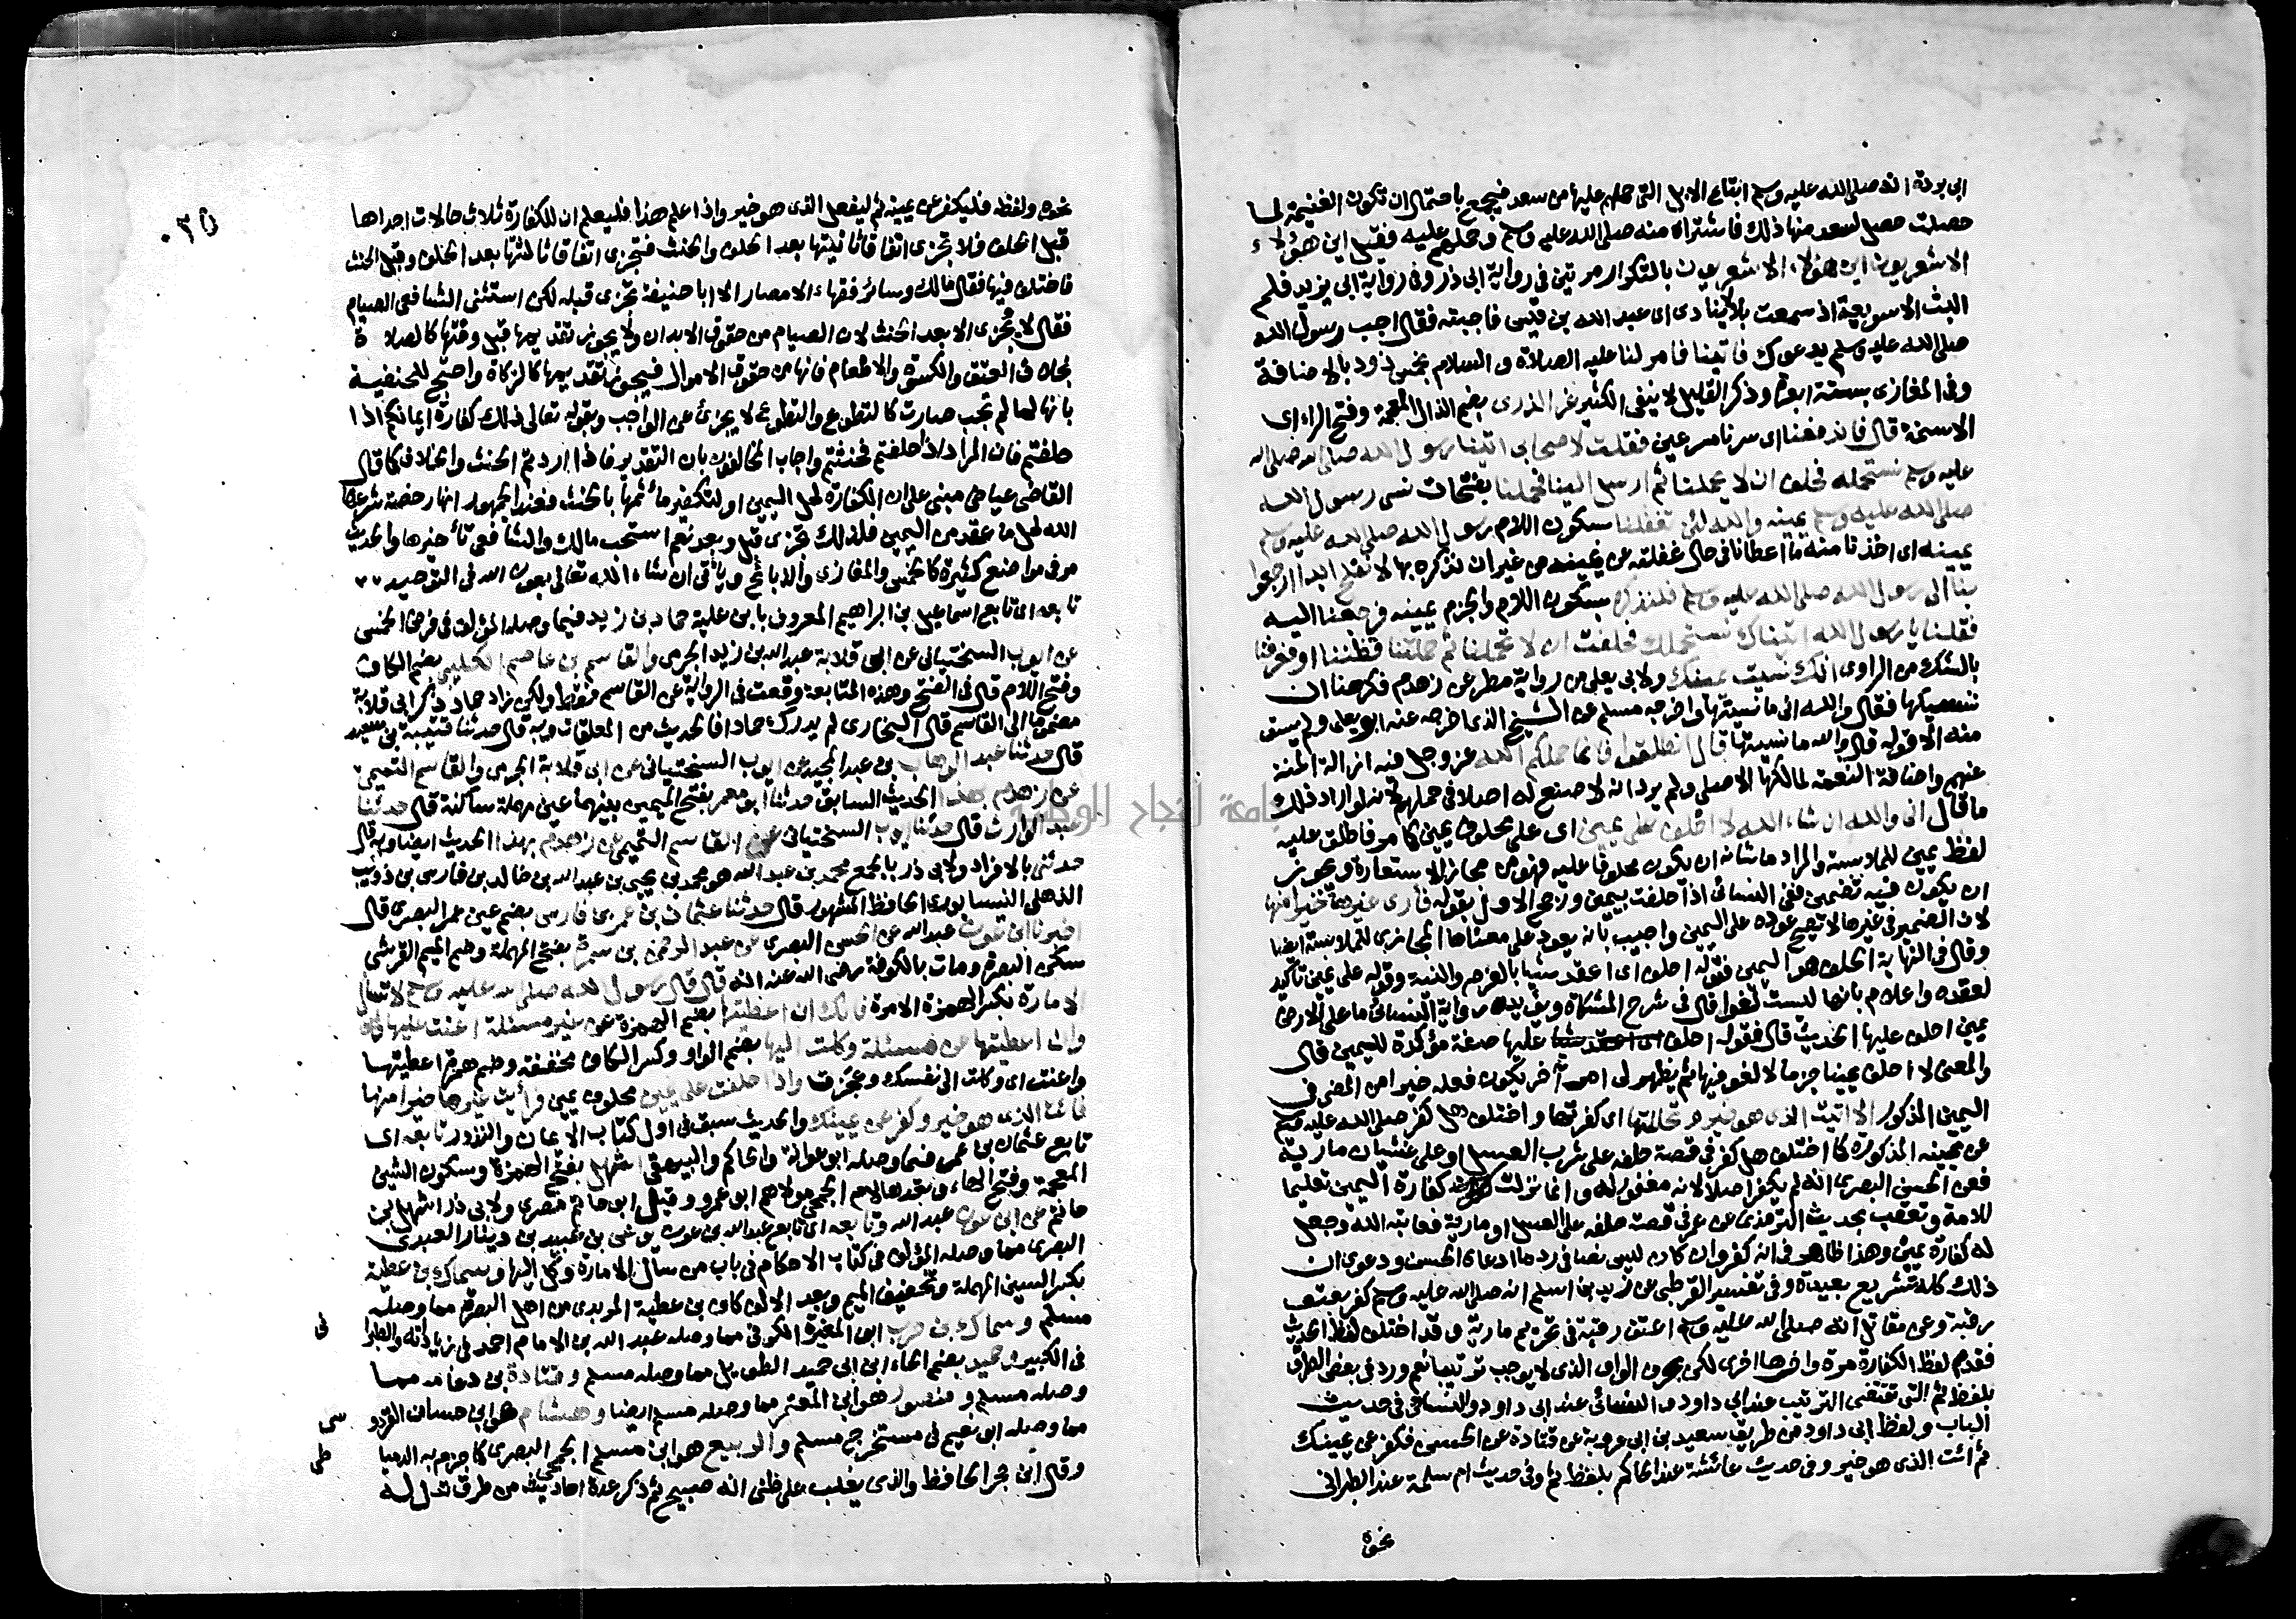 ابى بردة انه صلى الله عليه وسلم ابتاع الابل التى حملهم عليها من سعد فيجمع باحتمال ان تكون الغنيمة لما
حصلت حصل لسعد منها ذلك فاشتراه منه صلى الله عليه وسلم وحملهم عليه فقيل اين هؤلاء
الاشعريون اين هؤلاء الاشعريون بالتكرار مرتين فى رواية ابى ذر وفى رواية ابى يزيد فلم
البث الا سويعة اذ سمعت بلالا ينادى اى عبد الله بن قيس فاجبته فقال اجب رسول الله
صلى الله عليه وسلم يدعوك فاتينا فامر لنا عليه الصلاة والسلام بخمس ذود بالاضافة
وفى المغازى بستة ابعرة وذكر القليل لا ينفى الكثير غر الذرى بضم الذال المعجمة وفتح الراء اى
الاسنمة قال فاندفعنا اى سرنا مسرعين فقلت لاصحابى اتينا رسول الله صلى الله صلى الله
عليه وسلم نستحمله فحلف ان لا يحملنا ثم ارسل الينا فحملنا بفتحات نسى رسول الله
صلى الله عليه وسلم يمينه والله لئن تغفلنا بسكون اللام رسول الله صلى الله عليه وسلم
يمينه اى اخذنا منه ما اعطانا فى حال غفلته عن يمينه من غير ان نذكره بها لا نفلح ابدا ارجعوا
بنا الى رسول الله صلى الله عليه وسلم فلنذكره بسكون اللام والجزم يمينه فرجعنا اليه
فقلنا يا رسول الله اتيناك نستحملك فحلفت ان لا تحملنا ثم حملتنا فظننا او فعرفنا
بالشك من الراوى انك نسيت يمينك ولابى يعلى من رواية مطر عن زهدم فكرهنا ان
نمسكها فقال والله انى ما نسيتها واخرجه مسلم عن الشيخ الذى اخرجه عنه ابو يعلى ولم يسق
منه الا قوله قال والله ما نسيتها قال انطلقوا فانما حملكم الله عز وجل فيه ازالة المنة
عنهم واضافة النعمة لمالكها الاصلى ولم يرد انه لا صنع له اصلا فى حملهم لانه لو اراد ذلك
ما قال انى والله ان شاء الله لا احلف على يمين اى على محلوف يمين كما مر فاطلق عليه
لفظ يمين للملابسة والمراد ما شانه ان يكون محلوفا عليه فهو من مجاز الاستعارة ويجوز
ان يكون فيه تضمين ففى النسائى اذا حلفت بيمين ورجح الاول بقوله فأرى غيرها خيرا منها
لان الضمير فى غيرها لا يصح عوده على اليمين واجيب بانه يعود على معناها المجازى للملابسة ايضا
وقال فى النهاية الحلف هو اليمين فقوله احلف اى اعقد شيئا بالعزم والنية وقوله على يمين تاكيد
لعقده واعلام بانها ليست لغوا قال فى شرح المشكاة ويؤيده رواية النسائى ما على الارض
يمين احلف عليها الحديث قال فقوله احلف عليها صفة مؤكدة لليمين قال
والمعنى لا احلف يمينا جزما لا لغو فيها ثم يظهر لى امر آخر يكون فعله خيرا من المضى فى
اليمين المذكورة الا اتيت الذى هو خير وتحللتها اى كفرتها واختلف هل كفر صلى الله عليه وسلم
عن يمينه المذكورة كما اختلف هل كفر فى قصة حلفه على شرب العسل او على غشيان مارية
فعن الحسن البصرى انه لم يكفر اصلا لانه مغفور له وانما نزلت كفارة اليمين تعليما
للامة وتعقب بحديث الترمذى عن عمر فى قصة حلفه على العسل او مارية فعاتبه الله وجعل
له كفارة يمين وهذا ظاهر فى انه كفر وان كان ليس نصا فى رد ما ادعاه الحسن ودعوى ان
ذلك كله تشريع بعيدة وفى تفسير القرطبى عن زيد بن اسلم انه صلى الله عليه وسلم كفر بعتق
رقبة وعن مقاتل انه صلى الله عليه وسلم اعتق رقبة فى تحريم مارية وقد اختلف لفظ الحديث
فقدم لفظ الكفارة مرة واخرها اخرى لكن بحرف الواو الذى لا يوجب ترتيبا نعم ورد فى بعض الطرق
بلفظ ثم التى تقتضى الترتيب عند ابى داود والنسائى عند ابى داود والنسائى فى حديث
الباب ولفظ ابى داود من طريق سعيد بن ابى عروبة عن قتادة عن الحسن فكفر عن يمينك
ثم ائت الذى هو خير وفى حديث عائشة عند الحاكم بلفظ ثم وفى حديث ام سلمة عند الطبرانى
نحوه
٣٥٠
نحوه ولفظه فليكفر عن يمينه ثم ليفعل الذى هو خير واذا علم هذا فليعلم ان للكفارة ثلاث حالات احداها
قبل الحلف فلا تجزى اتفاقا ثانيتها بعد الحلف والحنث فتجزى اتفاقا ثالثتها بعد الحلف وقبل الحنث
فاختلف فيها فقال مالك وسائر فقهاء الامصار الا ابا حنيفة تجزى قبله لكن استثنى الشافعى الصيام
فقال لا يجزى الا بعد الحنث لان الصيام من حقوق الابدان ولا يجوز تقديمها قبل وقتها كالصلاة
بخلاف العتق والكسوة والاطعام فانها من حقوق الاموال فيجوز تقديمها كالزكاة واحتج للحنفية
بانها لما لم تجب صارت كالتطوع والتطوع لا يجزئ عن الواجب وبقوله تعالى ذلك كفارة ايمانكم اذا
حلفتم فان المراد اذا حلفتم فحنثتم واجاب المخالفون بان التقدير فاذا اردتم الحنث والخلاف كما قال
القاضى عياض مبنى على ان الكفارة لحل اليمين او لتكفير مأثمها بالحنث فعند الجمهور انها رخصة شرعها
الله لحل ما عقد من اليمين فلذلك تجزى قبل وبعد نعم استحب مالك والشافعى تأخيرها والحديث
مر فى مواضع كثيرة كالخمس والمغازى والذبائح ويأتى ان شاء الله تعالى بعون الله فى التوحيد
تابعه اى تابع اسماعيل بن ابراهيم المعروف بابن علية حماد بن زيد فيما وصله المؤلف فى فرض الخمس
عن ايوب السختيانى عن ابى قلابة عبد الله بن زيد الجرمى والقاسم بن عاصم الكليبى بضم الكاف
وفتح اللام قال فى الفتح وهذه المتابعة وقعت فى الرواية عن القاسم فقط ولكن زاد حماد ذكر ابى قلابة
مضموما الى القاسم قال البخارى لم يدرك حمادا فالحديث من المعلقات وبه قال حدثنا قتيبة بن سعيد
قال حدثنا عبد الوهاب بن عبد المجيد عن ايوب السختيانى عن ابى قلابة الجرمى والقاسم التميمى
عن زهدم بهذا الحديث السابق حدثنا ابو معمر بفتح الميمين بينهما عين مهملة ساكنة قال حدثنا
عبد الوارث قال حدثنا ايوب السختيانى عن القاسم التميمى عن زهدم بهذا الحديث ايضا وبه قال
حدثنى بالافراد ولابى ذر بالجمع محمد بن عبد الله هو محمد بن يحيى بن عبد الله بن خالد بن فارس بن ذؤيب
الذهلى النيسابورى الحافظ المشهور قال حدثنا عثمان بن عمر بن فارس بضم عين عمر البصرى قال
اخبرنا ابن عون عبد الله عن الحسن البصرى عن عبد الرحمن بن سمرة بفتح المهملة وضم الميم القرشى
سكن البصرة ومات بالكوفة رضى الله عنه انه قال قال رسول الله صلى الله عليه وسلم لا تسأل
الامارة بكسر الهمزة الامرة فانك ان اعطيتها بضم الهمزة عن غير مسئلة اعنت عليها
وان اعطيتها عن مسئلة وكلت اليها بضم الواو وكسر الكاف مخففة وضم همزة اعطيتها
واعنت اى وكلت الى نفسك وعجزت واذا حلفت على يمين محلوف يمين فرأيت غيرها خيرا منها
فائت الذى هو خير وكفر عن يمينك والحديث سبق فى اول كتاب الايمان والنذور تابعه اى
تابع عثمان بن عمر فيما وصله ابو عوانة والحاكم والبيهقى اشهل بفتح الهمزة وسكون الشين
المعجمة وفتح الهاء وبعدها لام الجمحى مولاهم ابو عمرو وقيل ابو حاتم بصرى ولابى ذر اشهل بن
حاتم عن ابن عون عبد الله وتابعه اى تابع عبد الله بن عون يونس بن عبيد بن دينار العبدى
البصرى مما وصله المؤلف فى كتاب الاحكام فى باب من سأل الامارة وكل اليها وسماك بن عطية
بكسر السين المهملة وتخفيف الميم وبعد الالف كاف بن عطية المربدى من اهل البصرة مما وصله
مسلم وسماك بن حرب ابو المغيرة الكوفى مما وصله عبد الله بن الامام احمد فى زياداته والطبرا
نى
فى الكبير وحميد بضم الحاء ابن ابى حميد الطويل مما وصله مسلم وقتادة بن دعامة مما
وصله مسلم ومنصور هو ابن المعتمر مما وصله مسلم ايضا وهشام هو ابن حسان القردو
سى
مما وصله ابو نعيم فى مستخرج مسلم والربيع هو ابن مسلم الجمحى البصرى كما جزم به الدميا
طى
وقال ابن حجر الحافظ والذى يغلب على ظنى انه صبيح ثم ذكر عدة احاديث من طرق تدل له